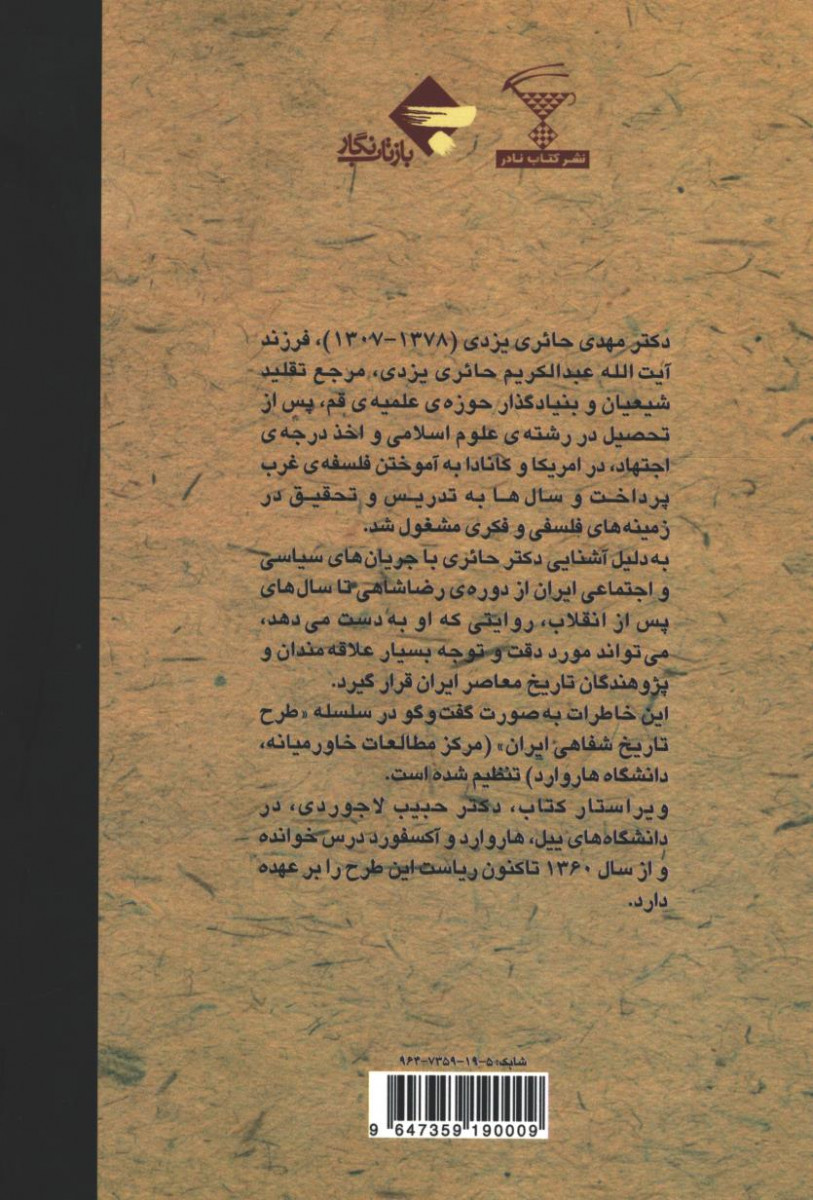 نشر کتاب نادر
بازتاب نگار
دکتر مهدی حائری یزدی (۱۳۷۸-۱۳۰۷)، فرزند
آیت الله عبدالکریم حائری یزدی، مرجع تقلید
شیعیان و بنیادگذار حوزه‌ی علمیه‌ی قم، پس از
تحصیل در رشته‌ی علوم اسلامی و اخذ درجه‌ی
اجتهاد، در امریکا و کانادا به آموختن فلسفه‌ی غرب
پرداخت و سال‌ها به تدریس و تحقیق در
زمینه‌های فلسفی و فکری مشغول شد.
به دلیل آشنایی دکتر حائری با جریان‌های سیاسی
و اجتماعی ایران از دوره‌ی رضاشاهی تا سال‌های
پس از انقلاب، روایتی که او به دست می‌دهد،
می‌تواند مورد دقت و توجه بسیار علاقه‌مندان و
پژوهندگان تاریخ معاصر ایران قرار گیرد.
این خاطرات به صورت گفت‌وگو در سلسله «طرح
تاریخ شفاهی ایران» (مرکز مطالعات خاورمیانه،
دانشگاه هاروارد) تنظیم شده است.
ویراستار کتاب، دکتر حبیب لاجوردی، در
دانشگاه‌های ییل، هاروارد و آکسفورد درس خوانده
و از سال ۱۳۶۰ تاکنون ریاست این طرح را بر عهده
دارد.
شابک: ۵-۱۹-۷۳۵۹-۹۶۴
9 647359 190009